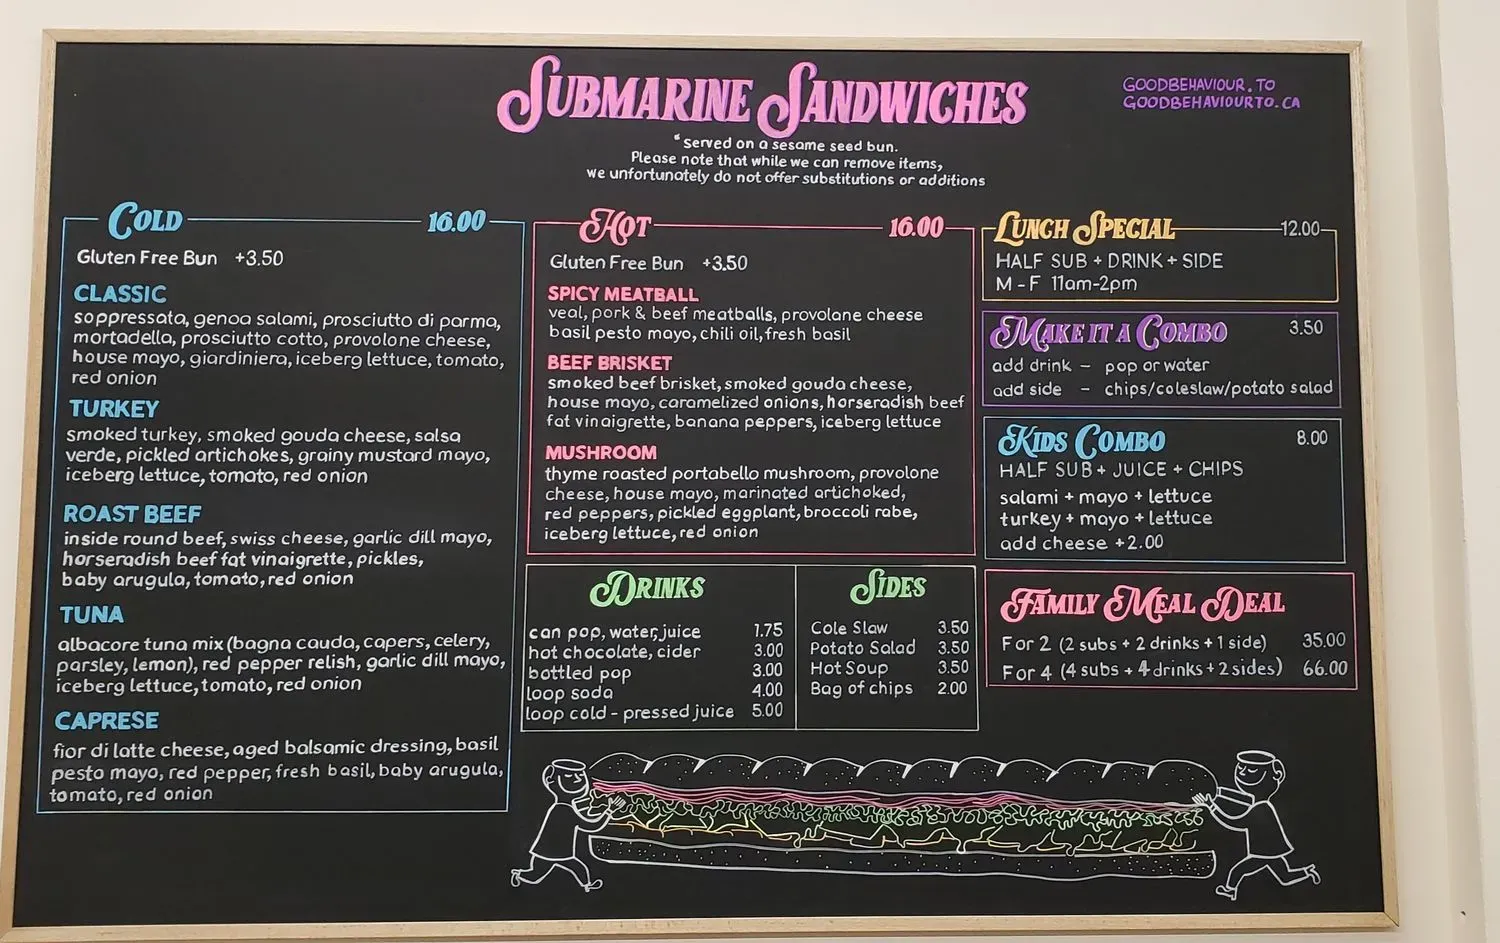 SUBMARINE SANDWICHES
GOODBEHAVIOUR.TO
GOODBEHAVIOURTO.CA
"Served on a sesame seed bun.
Please note that while we can remove items,
we unfortunately do not offer substitutions or additions
COLD 16.00
Gluten Free Bun +3.50
CLASSIC
soppressata, genoa salami, prosciutto di parma,
mortadella, prosciutto cotto, provolone cheese,
house mayo, giardiniera, iceberg lettuce, tomato,
red onion
TURKEY
smoked turkey, smoked gouda cheese, salsa
verde, pickled artichokes, grainy mustard mayo,
iceberg lettuce, tomato, red onion
ROAST BEEF
inside round beef, swiss cheese, garlic dill mayo,
horseradish beef fat vinaigrette, pickles,
baby arugula, tomato, red onion
TUNA
albacore tuna mix (bagna cauda, capers, celery,
parsley, lemon), red pepper relish, garlic dill mayo,
iceberg lettuce, tomato, red onion
CAPRESE
fior di latte cheese, aged balsamic dressing, basil
pesto mayo, red pepper, fresh basil, baby arugula,
tomato, red onion
HOT 16.00
Gluten Free Bun +3.50
SPICY MEATBALL
veal, pork & beef meatballs, provolane cheese
basil pesto mayo, chili oil, fresh basil
BEEF BRISKET
smoked beef brisket, smoked gouda cheese,
house mayo, caramelized onions, horseradish beef
fat vinaigrette, banana peppers, iceberg lettuce
MUSHROOM
thyme roasted portabello mushroom, provolone
cheese, house mayo, marinated artichoked,
red peppers, pickled eggplant, broccoli rabe,
iceberg lettuce, red onion
DRINKS
can pop, water, juice 1.75
hot chocolate, cider 3.00
bottled pop 3.00
loop soda 4.00
loop cold - pressed juice 5.00
SIDES
Cole Slaw 3.50
Potato Salad 3.50
Hot Soup 3.50
Bag of chips 2.00
LUNCH SPECIAL 12.00
HALF SUB + DRINK + SIDE
M - F 11am-2pm
MAKE IT A COMBO 3.50
add drink - pop or water
add side - chips/coleslaw/potato salad
KIDS COMBO 8.00
HALF SUB + JUICE + CHIPS
salami + mayo + lettuce
turkey + mayo + lettuce
add cheese +2.00
FAMILY MEAL DEAL
For 2 (2 subs + 2 drinks + 1 side) 35.00
For 4 (4 subs + 4 drinks + 2 sides) 66.00